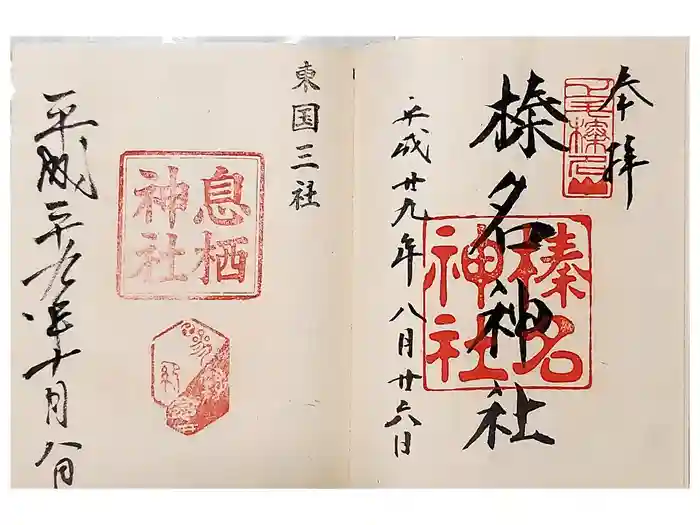 奉拝
榛名神社
榛名神社
平成廿九年八月廿六日
東国三社
息栖神社
平成二九年十月八日